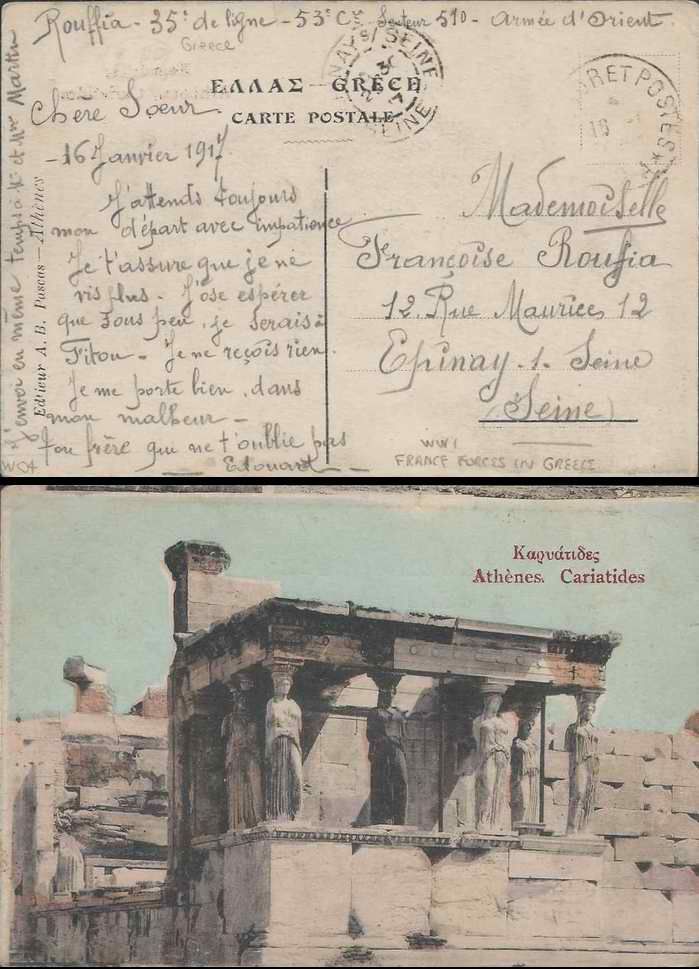 Rouffia - 35e de ligne - 53e Cie Secteur 510 - Armée d'Orient
Greece
ΕΛΛΑΣ — GRÈCE
CARTE POSTALE
NAY S/ SEINE
SEINE
TRESOR ET POSTES
Chère Soeur
- 16 Janvier 1917
J'attends toujours
mon départ avec impatience
Je t'assure que je ne
vis plus. J'ose espérer
que sous peu, je serais à
Fitou - Je ne reçois rien.
Je me porte bien, dans
mon malheur -
Ton frère qui ne t'oublie pas
Edouard
Mademoiselle
Françoise Rouffia
12, Rue Maurice 12
Epinay. s. Seine
(Seine)
WW1
FRANCE FORCES IN GREECE
J'envoi en même temps à Mr et Mme Martin
Editeur A. B. Pascas — Athènes
W04
Καρυάτιδες
Athènes. Cariatides